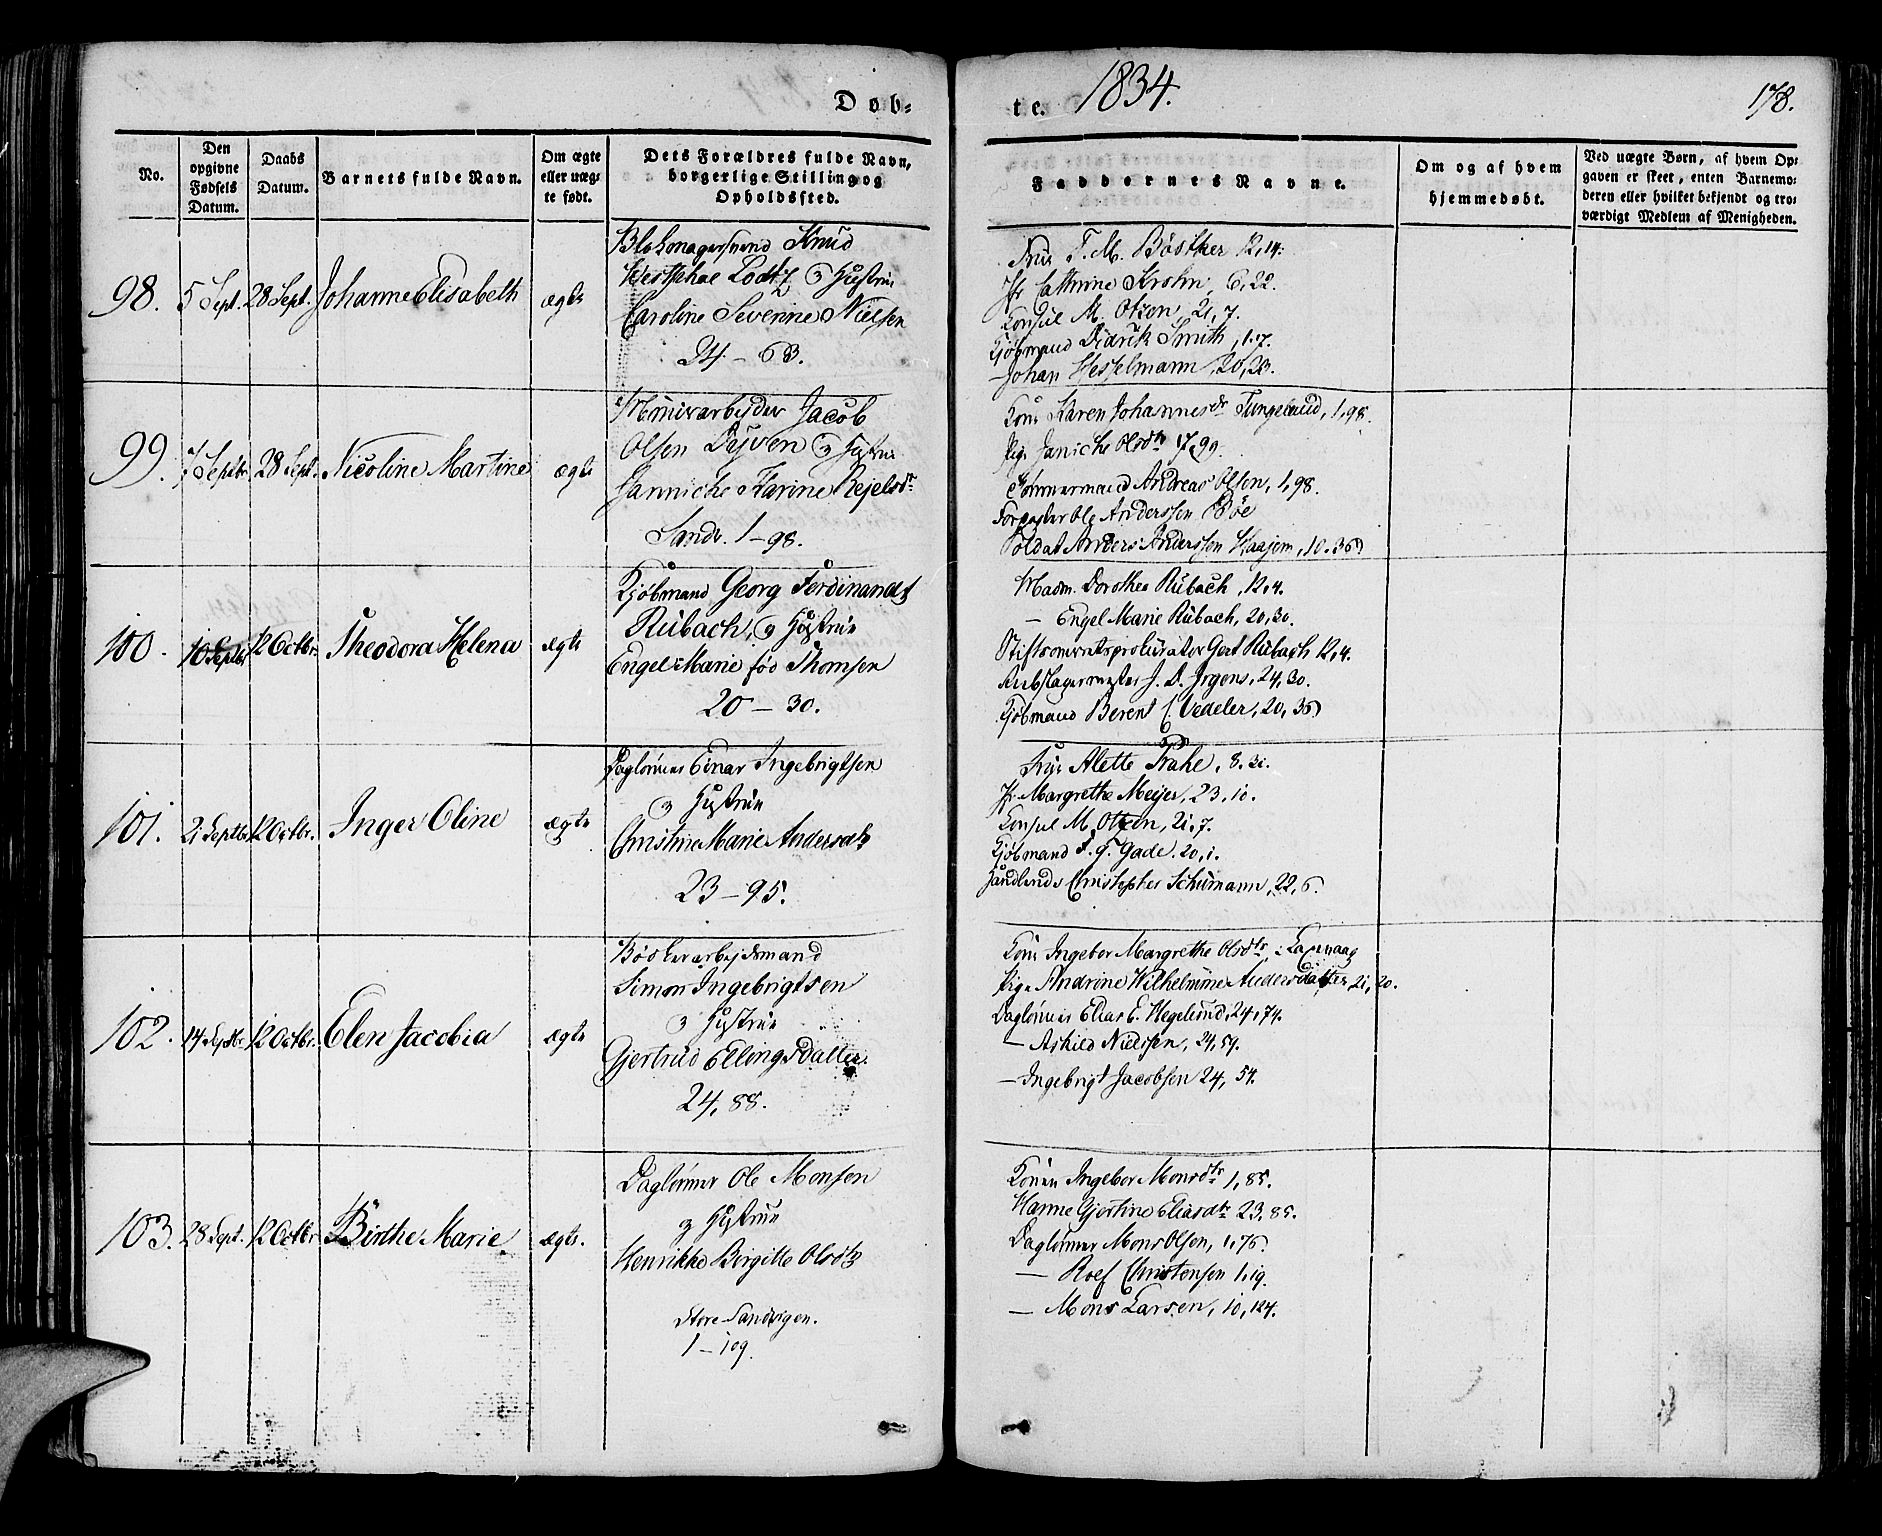 Døb-
te. 1834.
178.
No.
Den opgivne Fødsels Datum.
Daabs Datum.
Barnets fulde Navn.
Om ægte eller uægte født.
Dets Forældres fulde Navn, borgerlige Stilling og Opholdssted.
Faddernes Navne.
Om og af hvem hjemmedøbt.
Ved uægte Børn, af hvem Opgaven er skeet, enten Barnemoderen eller hvilket bekjendt og troværdigt Medlem af Menigheden.
98.
5 Sept.
28 Sept.
Johanne Elisabeth
ægte
Blokmagersvend Knud
Westphal Lodtz og Hustrue
Caroline Severine Nielsen
24 - 63.
Frue T. M. Bøsther 12,14.
Jfr Cathrine Krohn, 6,22.
Konsul M. Otzen, 21,7.
Kjøbmand Didrik Smith, 1.7.
Johan Hesselmann, 20,23.
99.
7 Septbr.
28 Sept.
Nicoline Martine
ægte
Muurarbeider Jacob
Olsen Dyven og Hustrue
Janniche Karine Rejelsdr
Sandv. 1-98.
Kone Karen Johannesdr Tungeland, 1,98.
Pige Janiche Olsdtr 17,99.
Tømmermand Andreas Olsen, 1,98.
Ole Anderssen Bøe
Soldat Anders Anderssen Haajem, 10.36
100.
10 Septbr
12 Octbr.
Theodora Helena
ægte
Kjøbmand Georg Ferdinandt
Rubach, og Hustrue
Engel Marie fød Thomsen
20 - 30.
Madm. Dorothea Rubach, 12,4.
- Engel Marie Rubach, 20,30.
Stiftsoverretsprokurator Gert Rubach 12,4.
Rebslagermester J. D. Jrgens, 24,30.
Kjøbmand Berent C. Vedeler, 20,36
101.
21 Septbr
12 Octbr.
Inger Oline
ægte
Dagleiner Einar Ingebrigtsen
og Hustrue
Christine Marie Andersdtr
23 - 95.
Frue Alette Prahl, 8.31.
Jfr Margrethe Meijer, 23,10.
Konsul M. Otzen, 21,7.
Kjøbmand F. G. Gade. 20,1.
Handlende Christopher Schumann, 22,6.
102.
14 Septbr.
12 Octbr.
Elen Jacobia
ægte
Bødkerarbejdsmand
Simon Ingebrigtsen
og Hustrue
Gjertrud Ellingsdatter.
24,88.
Kone Ingebor Margrethe Olsdtr, i Laxevaag
Pige Andrine Wilhelmine Andersdatter, 21,20.
Dagleiner Elias E. Hegelund, 24,74.
- Askild Nielssen, 24,54.
- Ingebrigt Jacobsen 24,54.
103.
28 Sept.
12 Octbr
Birthe Marie
ægte.
Dagleiner Ole Monsen
og Hustrue
Henrikke Birgitte Olsdtr
Store Sandvigen.
1 - 109.
Konen Ingebor Monsdtr 1,85.
Hanne Gjertine Eliasdtr 23,85.
Dagleiner Mons Olsen, 1,76.
- Roef Christensen 1,19.
- Mons Larsen, 10,124.